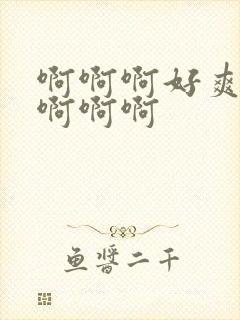 啊啊啊好爽
啊啊啊
鱼酱二千